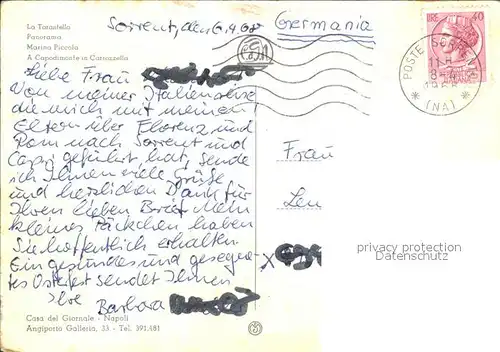 La Tarantella
Panorama
Marina Piccola
A Capodimonte in Carrozzella
Sorrent, den 6.4.68
Germania
LIRE 40
POSTE SORR
11
8
1968
* (NA) *
Liebe Frau
Von meiner Italienreise
die mich mit meinen
Eltern über Florenz und
Rom nach Sorrent und
Capri geführt hat, sende
ich Ihnen viele Grüße
und herzlichen Dank für
Ihren lieben Brief. Mein
kleines Päckchen haben
Sie hoffentlich erhalten.
Ein gesundes und gesegne-
tes Osterfest sendet Ihnen
Ihre
Barbara
Frau
Len
X
privacy protection
Datenschutz
Casa del Giornale - Napoli
Angiporto Galleria, 33 - Tel. 391.481